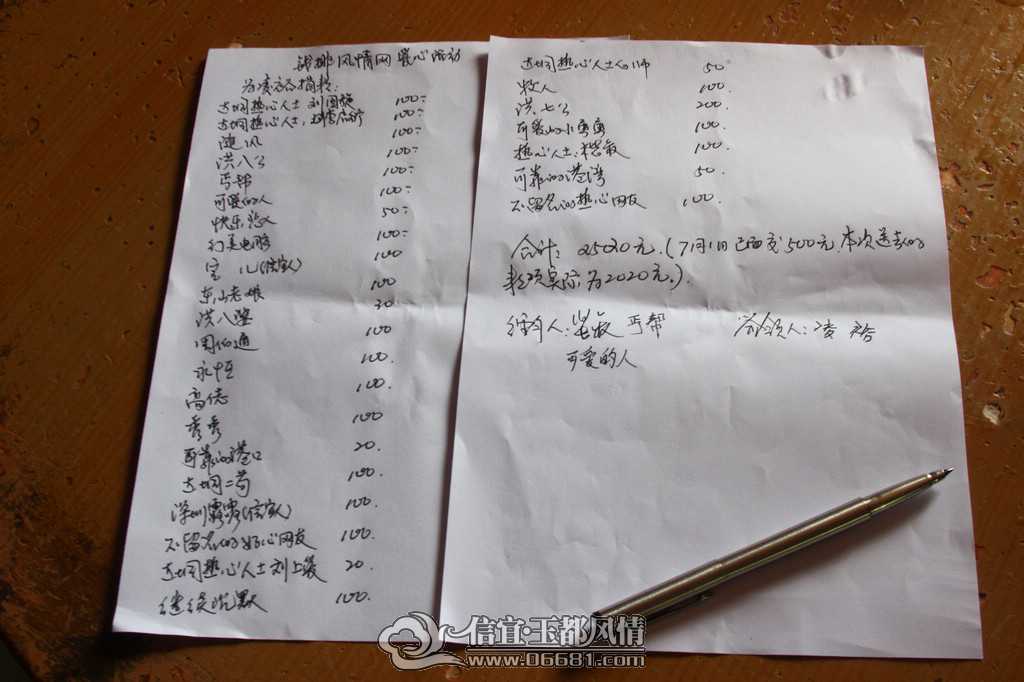 风情网 爱心活动
为凌 捐款:
热心人士 刘国 100-
热心人士, 100-
随风 100-
洪八公 100-
丐帮 100-
可爱的人 100-
快乐 50-
电脑 100-
宝 儿(信宜人) 100
东山老娘 100
洪八 20
周伯通 100
永恒 100.
高佬 100.
秀秀 100
可靠的港口 20.
二苟 100.
深圳露露(信宜人) 100.
不留名的好心网友 100.
热心人士 刘上 20.
继续沉默 100.
热心人士 50
牧人 100.
洪七公 200.
可爱的小 100.
热心人士: 敏 100.
可靠的港湾 50.
不留名的热心网友 100.
合计: 2520元.(7月1日已面交500元,本次送去的
款项实际为2020元.)
经手人: 丐帮
可爱的人
签领人: 凌
信宜·玉都风情
www.06681.com